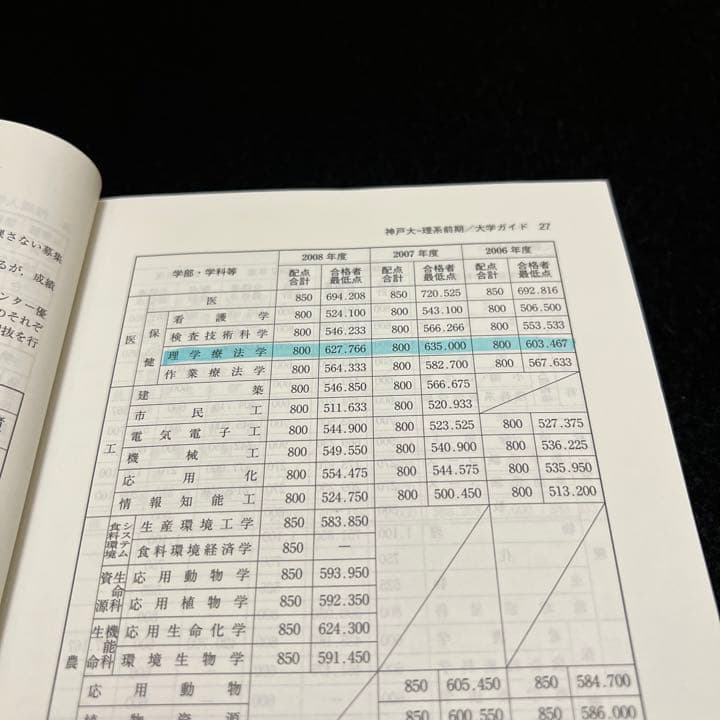 神戸大-理系前期／大学ガイド 27
学部・学科等 2008年度 2007年度 2006年度
配点合計 合格者最低点 配点合計 合格者最低点 配点合計 合格者最低点
医 医 850 694.208 850 720.525 850 692.816
保健 看護学 800 524.100 800 543.100 800 506.500
検査技術科学 800 546.233 800 566.266 800 553.533
理学療法学 800 627.766 800 635.000 800 603.467
作業療法学 800 564.333 800 582.700 800 567.633
工 建築 800 546.850 800 566.675
市民工 800 511.633 800 520.933
電気電子工 800 544.900 800 523.525 800 527.375
機械工 800 549.550 800 540.900 800 536.225
応用化 800 554.475 800 544.575 800 535.950
情報知能工 800 524.750 800 500.450 800 513.200
農 食料環境システム 生産環境工学 850 583.850
食料環境経済学 850 —
資源生命科 応用動物学 850 593.950
応用植物学 850 592.350
生命機能科 応用生命化学 850 624.300
環境生物学 850 591.450
応用動物 850 605.450 850 584.700
植物資源 850 600.550 850 586.000
戻さない募集
るが，成績
ンター優
のそれぞ
抜を行